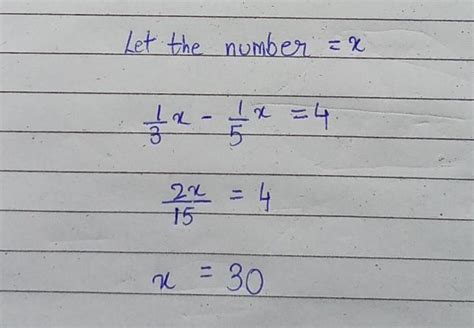 Let the number = x
1/3 x - 1/5 x = 4
2x/15 = 4
x = 30